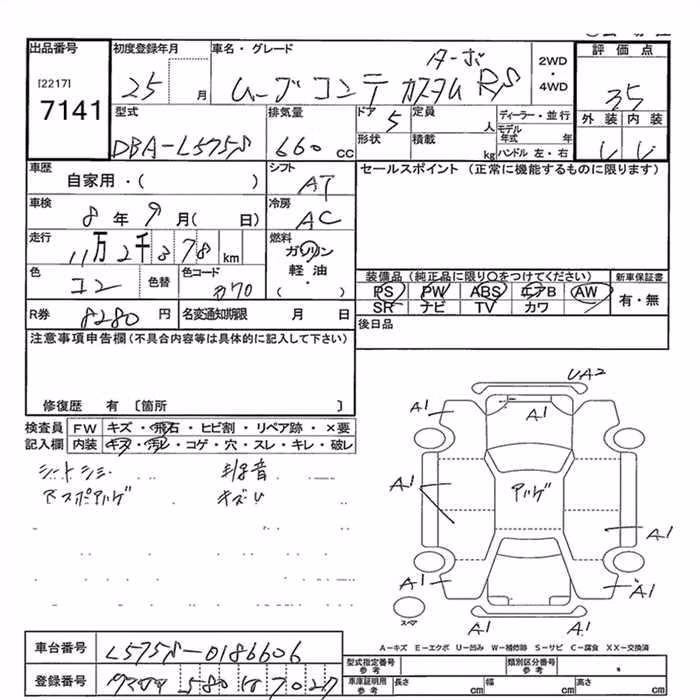 出品番号
[2217]
7141
初度登録年月
25 月
車名・グレード
ターボ
ムーヴコンテ カスタム RS
2WD
・
4WD
評価点
3.5
外装 内装
型式
DBA-L575S
排気量
660 cc
ドア
5
定員
人
形状
積載
kg
ディーラー・並行
モデル年式 年
ハンドル 左・右
車歴
自家用・( )
シフト
AT
セールスポイント (正常に機能するものに限ります)
車検
8年9月( 日)
冷房
AC
走行
11万2千378km
燃料
ガソリン
軽油・
( )
色
コン
色替
色コード
装備品(純正品に限り○をつけてください)
PS PW ABS エアB AW
SR ナビ TV カワ
新車保証書
有・無
R券
8280円
名変通知期限 月 日
後日品
注意事項申告欄(不具合内容等は具体的に記入して下さい)
修復歴 有 〔箇所 〕
検査員記入欄
FW キズ・飛石・ヒビ割・リペア跡・×要
内装 キズ・汚レ・コゲ・穴・スレ・キレ・破レ
シートシミ
キズU
UA2
A1
A1
A1
A1
アッゲ
A1
A1
A1
A1
A1
スペア
A-キズ E-エクボ U-凹み W-補修跡 S-サビ C-腐食 XX-交換済
車台番号
L575S-0186606
登録番号
580 7027
型式指定番号
参考
類別区分番号
参考
車庫証明用
参考
長さ cm
幅 cm
高さ cm